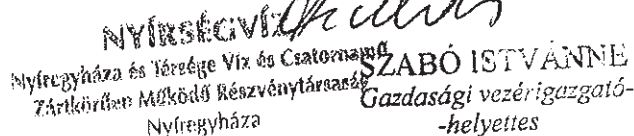 NYÍRSÉGVÍZ
Nyíregyháza és Térsége Víz és Csatornamű
Zártkörűen Működő Részvénytársaság
Nyíregyháza
SZABÓ ISTVÁNNÉ
Gazdasági vezérigazgató-
-helyettes